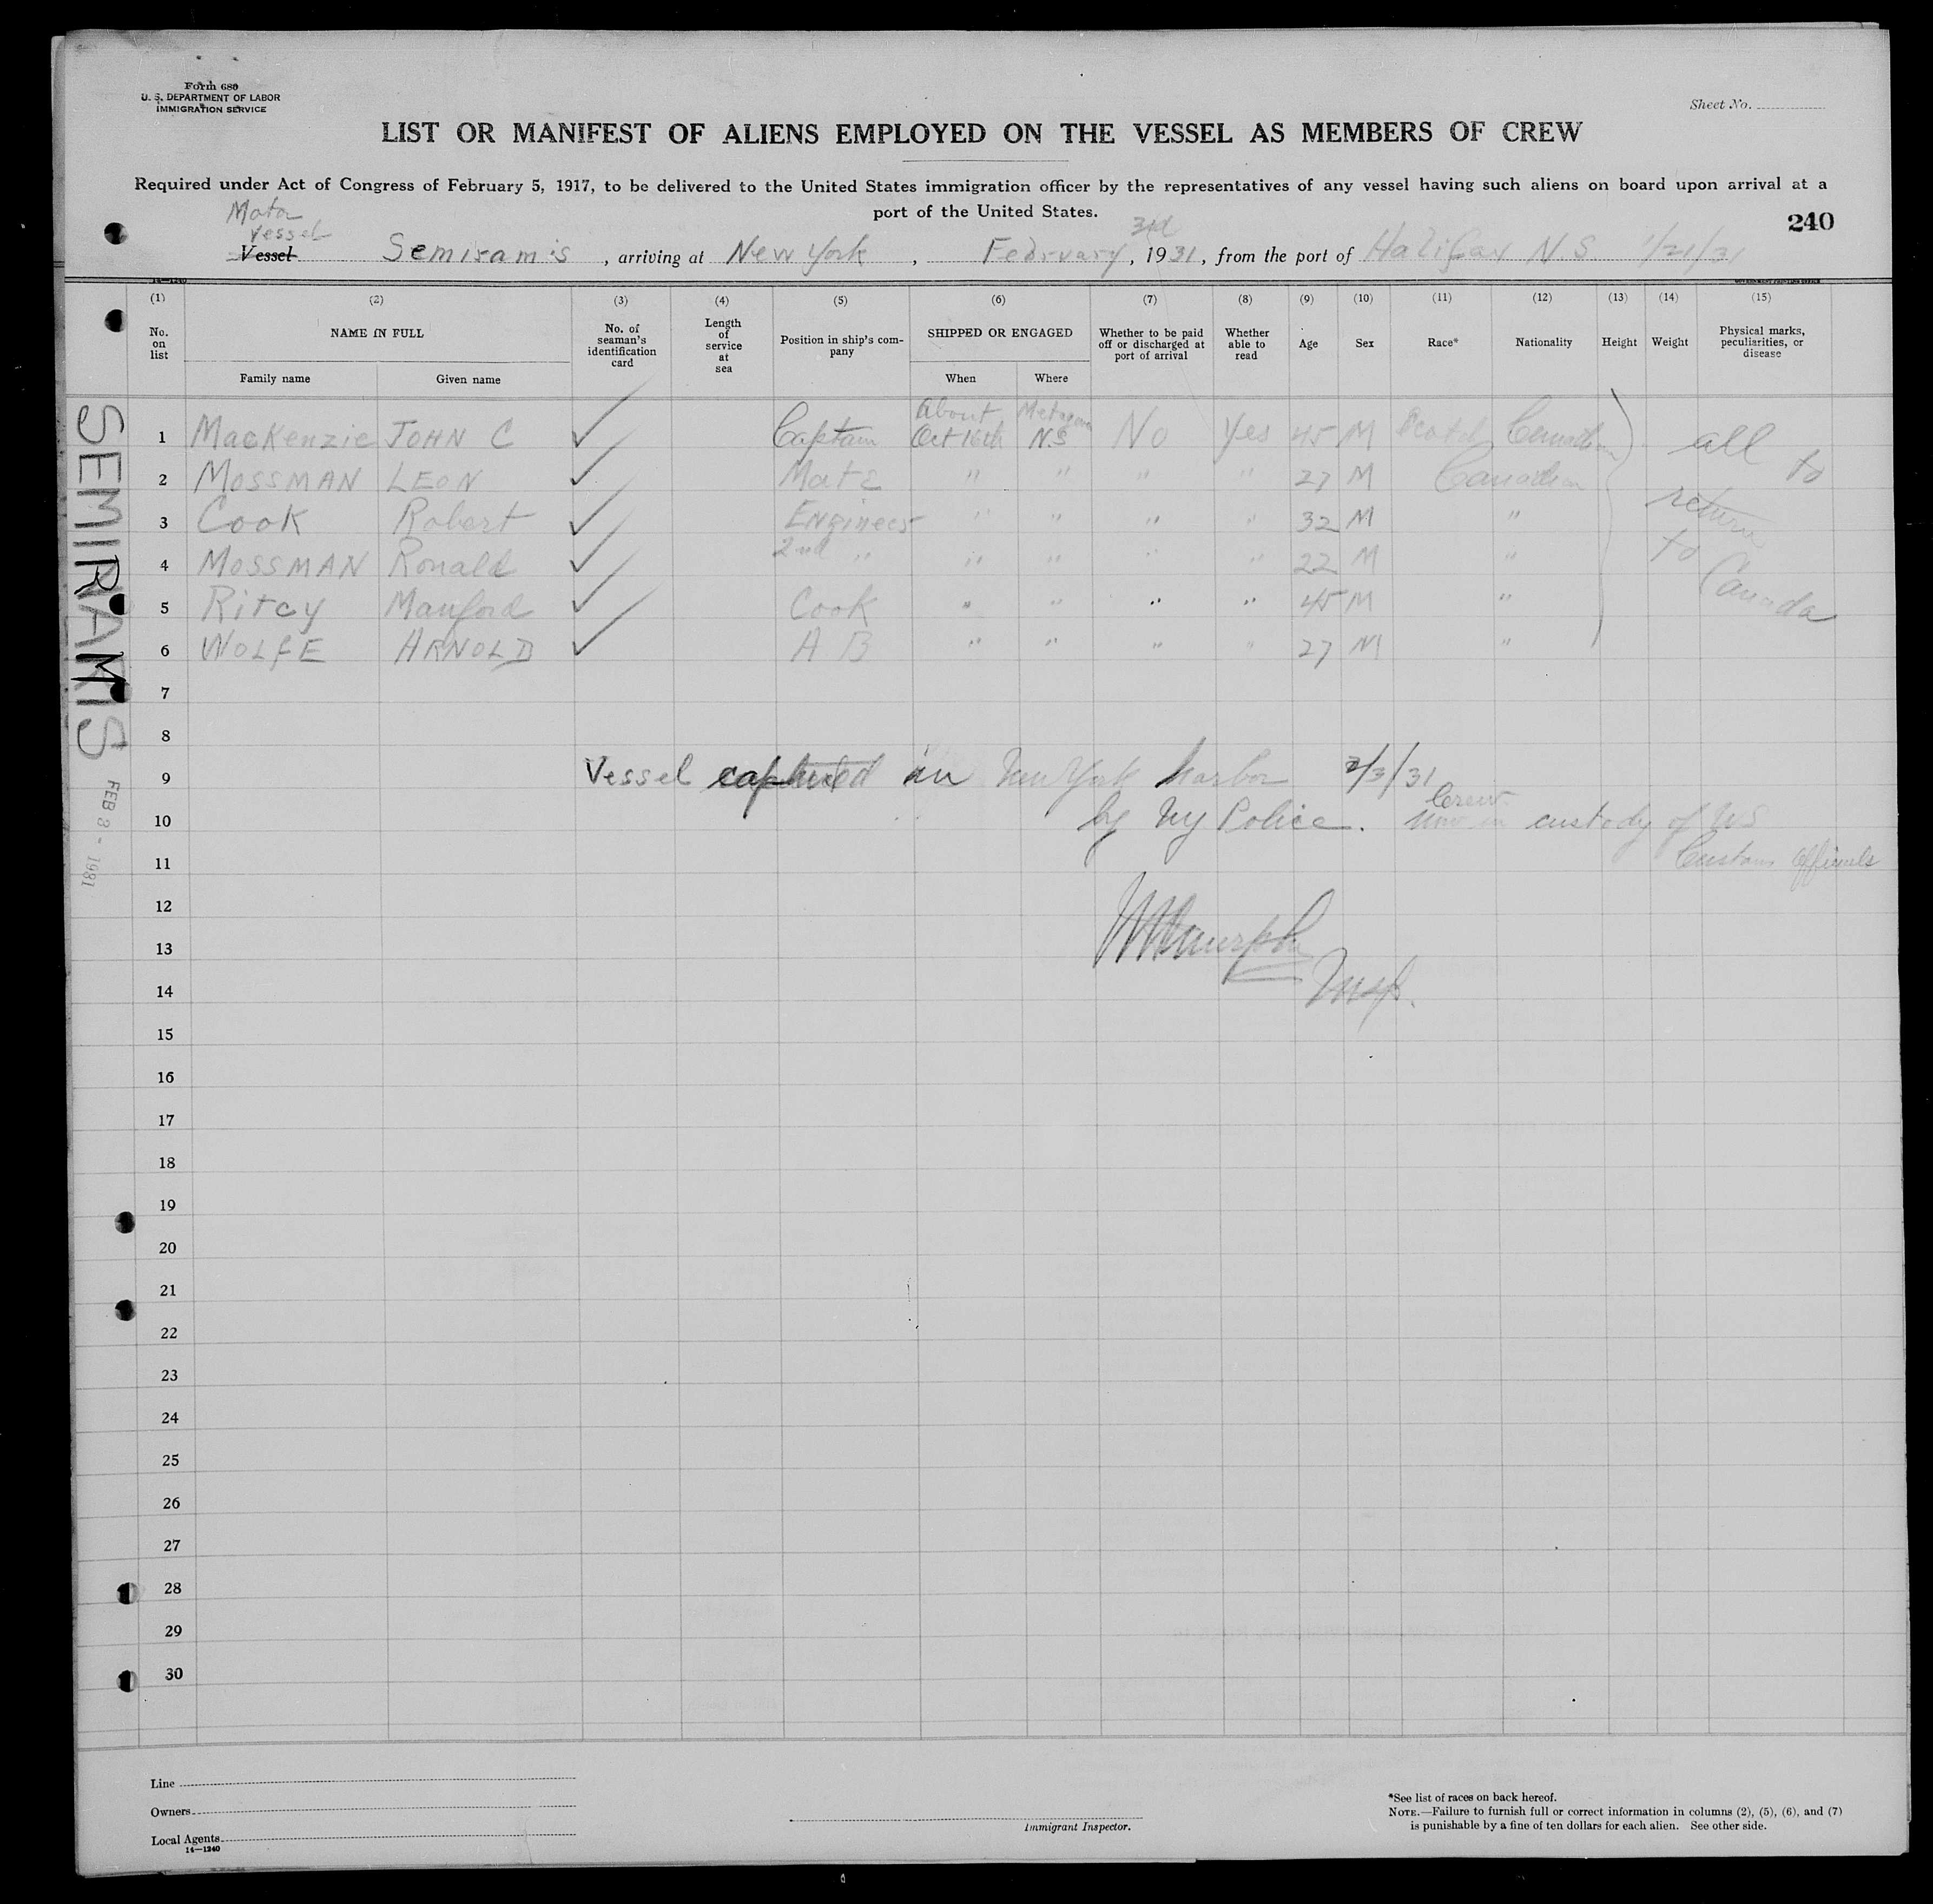 Form 680
U. S. DEPARTMENT OF LABOR
IMMIGRATION SERVICE
Sheet No.
LIST OR MANIFEST OF ALIENS EMPLOYED ON THE VESSEL AS MEMBERS OF CREW
Required under Act of Congress of February 5, 1917, to be delivered to the United States immigration officer by the representatives of any vessel having such aliens on board upon arrival at a
port of the United States.
240
Motor
Vessel
Vessel Semiramis, arriving at New York, February 3rd, 1931, from the port of Halifax N.S 1/21/31
14—1240
(1) (2) (3) (4) (5) (6) (7) (8) (9) (10) (11) (12) (13) (14) (15)
No. on list
NAME IN FULL
Family name Given name
No. of seaman's identification card
Length of service at sea
Position in ship's company
SHIPPED OR ENGAGED
When Where
Whether to be paid off or discharged at port of arrival
Whether able to read
Age
Sex
Race*
Nationality
Height
Weight
Physical marks, peculiarities, or disease
1 MacKenzie JOHN C Captain About Oct 16th N.S No Yes 45 M Scotch Canadian
2 MOSSMAN LEON Mate " " " " 27 M Canadian
3 Cook Robert Engineer " " " " 32 M "
4 MOSSMAN Ronald 2nd " " " " " 22 M "
5 Ritcy Manford Cook " " " " 45 M "
6 WOLFE ARNOLD A B " " " " 27 M "
all to
return
to
Canada
7
8
9 Vessel captured in New York harbor 2/3/31
10 by NY Police. Crew now in custody of US
11 Customs Officials
12
13 Murphy
14 Insp.
15
16
17
18
19
20
21
22
23
24
25
26
27
28
29
30
SEMIRAMIS
FEB 3 - 1931
Line
Owners
Local Agents
14—1240
Immigrant Inspector.
*See list of races on back hereof.
NOTE.—Failure to furnish full or correct information in columns (2), (5), (6), and (7)
is punishable by a fine of ten dollars for each alien. See other side.